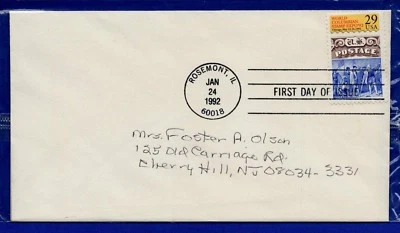 WORLD
COLUMBIAN
STAMP EXPO'92
29
USA
U.S.
POSTAGE
ROSEMONT, IL
JAN
24
1992
60018
FIRST DAY OF ISSUE
Mrs. Foster A. Olson
125 Old Carriage Rd.
Cherry Hill, NJ 08034-3331